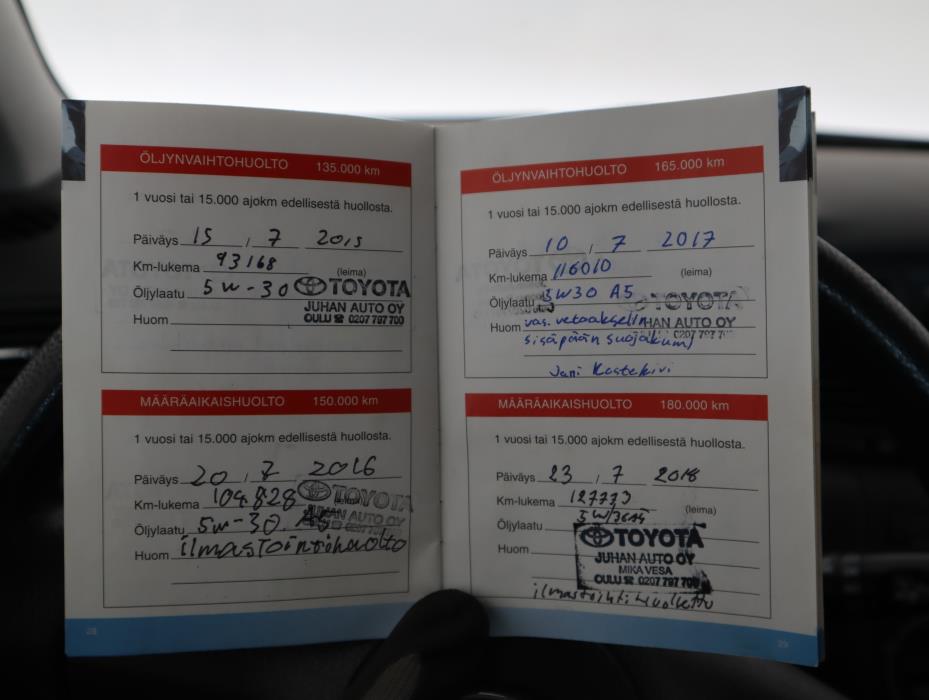 ÖLJYNVAIHTOHUOLTO 135.000 km
1 vuosi tai 15.000 ajokm edellisestä huollosta.
Päiväys 15 / 7 2015
Km-lukema 93168
(leima)
Öljylaatu 5W-30
TOYOTA
JUHAN AUTO OY
OULU ☎ 0207 797 700
Huom
MÄÄRÄAIKAISHUOLTO 150.000 km
1 vuosi tai 15.000 ajokm edellisestä huollosta.
Päiväys 20 / 7 2016
Km-lukema 104.828
TOYOTA
Öljylaatu 5W-30 A5
JUHAN AUTO OY
Huom ilmastointihuolto
28
ÖLJYNVAIHTOHUOLTO 165.000 km
1 vuosi tai 15.000 ajokm edellisestä huollosta.
Päiväys 10 / 7 2017
Km-lukema 116010
(leima)
Öljylaatu 5W30 A5
TOYOTA
Huom vas. vetoakselin
HAN AUTO OY
sisäpään suojakumi
Jani
MÄÄRÄAIKAISHUOLTO 180.000 km
1 vuosi tai 15.000 ajokm edellisestä huollosta.
Päiväys 23 / 7 2018
Km-lukema 127773
(leima)
Öljylaatu
Huom
TOYOTA
JUHAN AUTO OY
MIKA VESA
OULU ☎ 0207 797 700
29